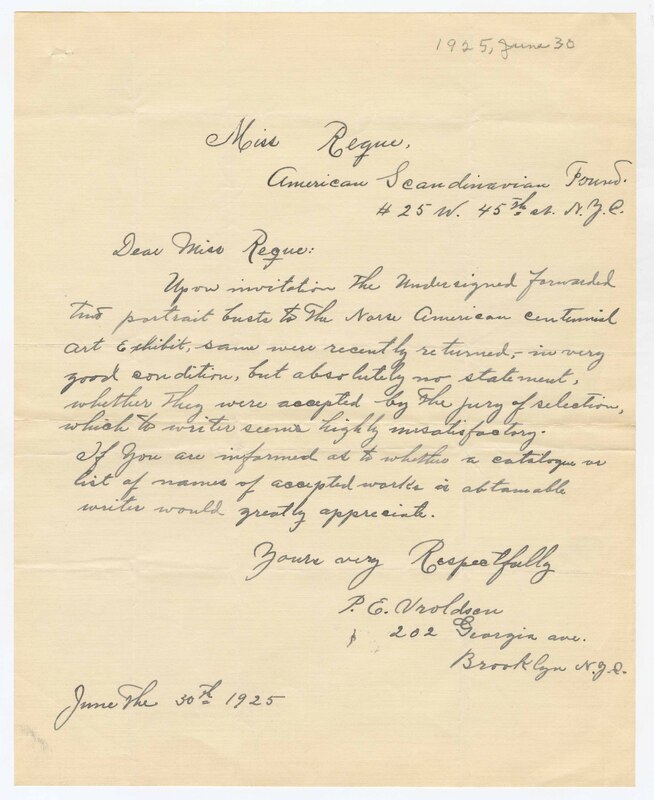 1925, June 30
Miss Reque,
American Scandinavian Found.
# 25 W. 45th st. N.Y.C.
Dear Miss Reque:
Upon invitation the Undersigned forwarded
two portrait busts to the Norse American centennial
art Exhibit, same were recently returned, in very
good condition, but absolutely no statement,
whether they were accepted by the jury of selection,
which to writer seems highly unsatisfactory.
If You are informed as to whether a catalogue or
list of names of accepted works is obtainable
writer would greatly appreciate.
Yours very Respectfully
P. E. Vroldsen
202 Georgia ave.
Brooklyn N.Y.C.
June the 30th 1925